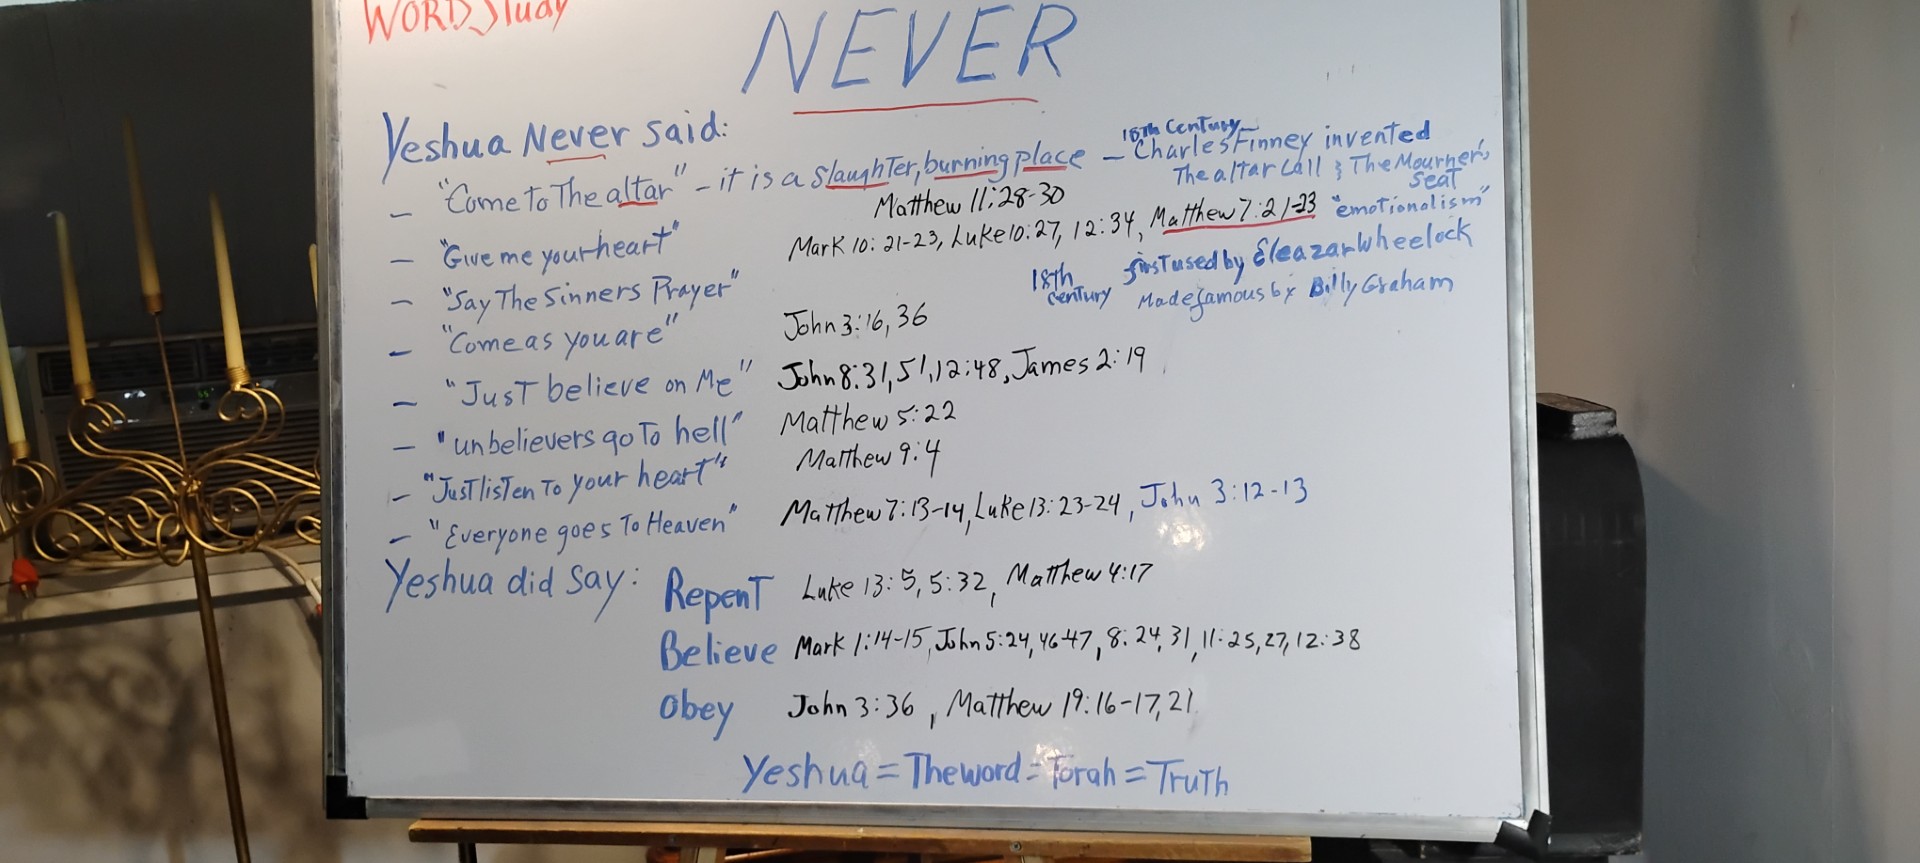 WORD Study
NEVER
Yeshua Never said:
- "Come to The altar" - it is a slaughter, burning place - 18th Century Charles Finney invented
The altar Call & The Mourner's
seat
Matthew 11:28-30
"emotionalism"
- "Give me your heart" Mark 10:21-23, Luke 10:27, 12:34, Matthew 7:21-23
- "Say The Sinners Prayer" 18th century first used by Eleazar Wheelock
Made famous by Billy Graham
- "Come as you are" John 3:16, 36
- "Just believe on Me" John 8:31, 51, 12:48, James 2:19
- "unbelievers go To hell" Matthew 5:22
- "Just listen To your heart" Matthew 9:4
- "Everyone goes To Heaven" Matthew 7:13-14, Luke 13:23-24, John 3:12-13
Yeshua did say: Repent Luke 13:5, 5:32, Matthew 4:17
Believe Mark 1:14-15, John 5:24, 46-47, 8:24, 31, 11:25, 27, 12:38
Obey John 3:36, Matthew 19:16-17, 21
Yeshua = The word = Torah = Truth